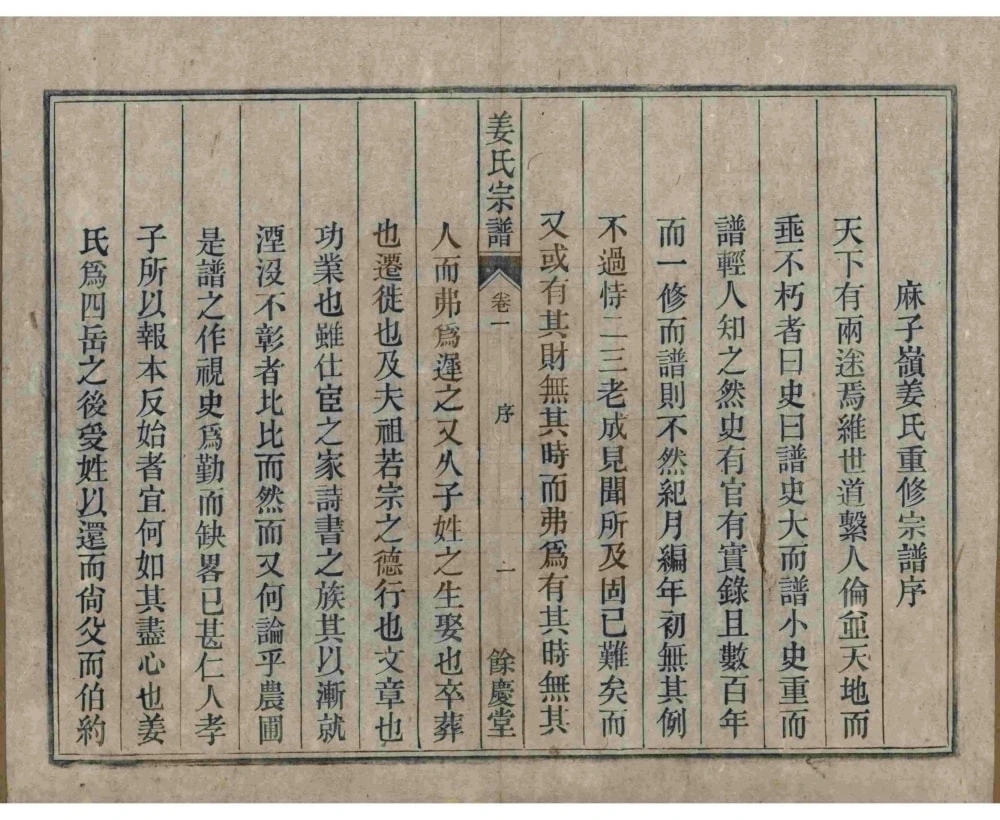 麻子嶺姜氏重修宗譜序
天下有兩途焉維世道繫人倫並天地而
垂不朽者曰史曰譜史大而譜小史重而
譜輕人知之然史有官有實錄且數百年
而一修而譜則不然紀月編年初無其例
不過恃二三老成見聞所及固已難矣而
又或有其財無其時而弗爲有其時無其
姜氏宗譜 卷一 序 一 餘慶堂
人而弗爲遲之又久子姓之生娶也卒葬
也遷徙也及夫祖若宗之德行也文章也
功業也雖仕宦之家詩書之族其以漸就
湮沒不彰者比比而然而又何論乎農圃
是譜之作視史爲勤而缺畧已甚仁人孝
子所以報本反始者宜何如其盡心也姜
氏爲四岳之後受姓以還而尙父而伯約